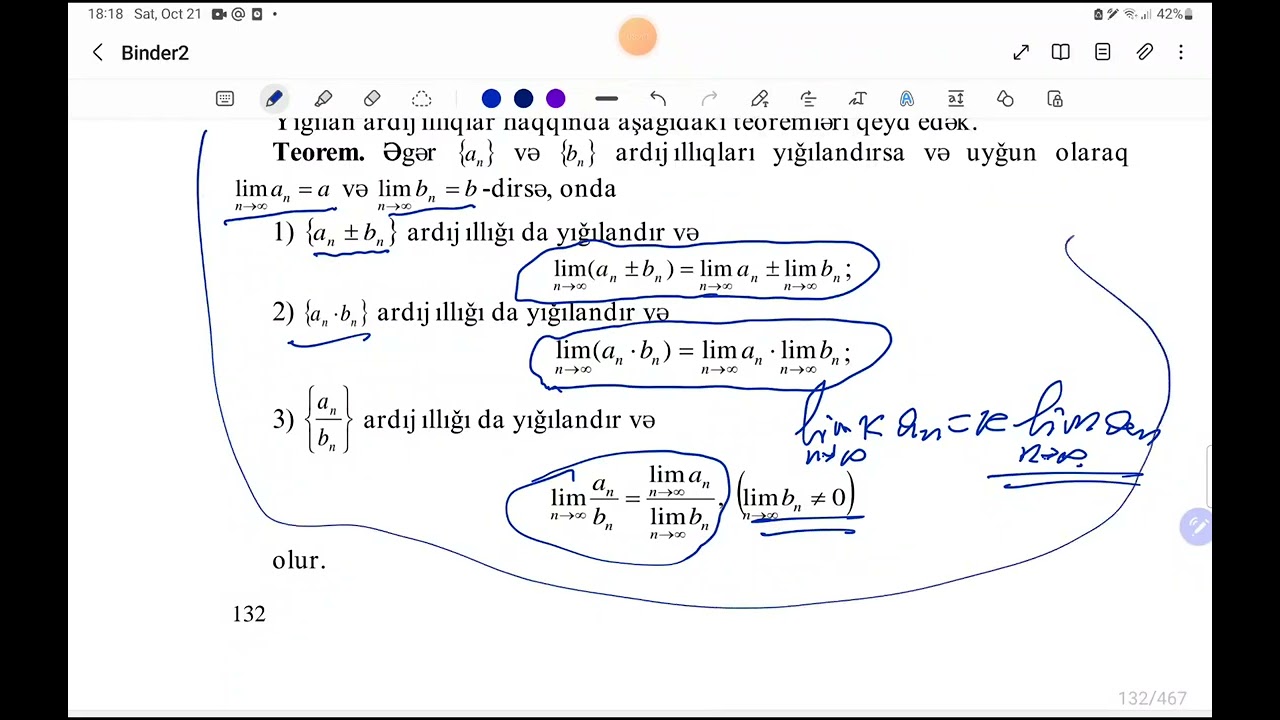 18:18 Sat, Oct 21 42%
Binder2
Yığılan ardıjıllıqlar haqqında aşağıdakı teoremləri qeyd edək.
Teorem. Əgər {aₙ} və {bₙ} ardıjıllıqları yığılandırsa və uyğun olaraq
lim aₙ = a və lim bₙ = b -dirsə, onda
n→∞ n→∞
1) {aₙ ± bₙ} ardıjıllığı da yığılandır və
lim(aₙ ± bₙ) = lim aₙ ± lim bₙ ;
n→∞ n→∞ n→∞
2) {aₙ · bₙ} ardıjıllığı da yığılandır və
lim(aₙ · bₙ) = lim aₙ · lim bₙ ;
n→∞ n→∞ n→∞
3) {aₙ/bₙ} ardıjıllığı da yığılandır və
lim k aₙ = k lim aₙ
n→∞ n→∞
lim aₙ/bₙ = lim aₙ / lim bₙ , (lim bₙ ≠ 0)
n→∞ n→∞ n→∞ n→∞
olur.
132
132/467